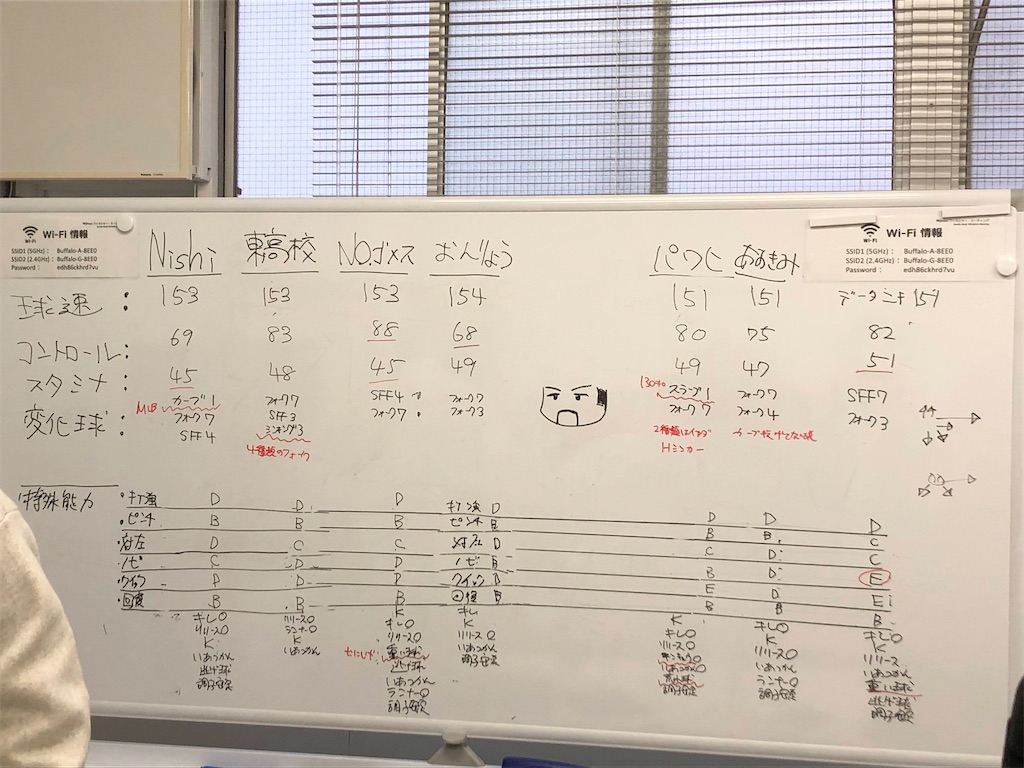 Wi-Fi 情報
SSID1 (5GHz) : Buffalo-A-8EE0
SSID2 (2.4GHz) : Buffalo-G-8EE0
Password : edh86ckhrd7vu
Wi-Fi 情報
SSID1 (5GHz) : Buffalo-A-8EE0
SSID2 (2.4GHz) : Buffalo-G-8EE0
Password : edh86ckhrd7vu
Nishi 東高校 NO.ゴメス おんじょう パワヒ
球速: 153 153 153 154 151 151 データミキ 151
コントロール: 69 83 88 68 80 75 82
スタミナ: 45 48 45 49 49 47 51
変化球: カーブ1 フォーク7 SFF4 フォーク7 スラーブ1 フォーク7 SFF7
MLB フォーク7 SFF3 フォーク7 フォーク3 フォーク7 フォーク4 フォーク3
SFF4
4種類のフォーク
Hシンカー
特殊能力
・打強 D D D 打強 D D D D
・ピンチ B B B ピンチ B B B C
・対左 D C C 対左 D C D C
・ノビ C D D ノビ B B D E
・クイック D D D クイック D E D E
・回復 B B B 回復 B B B B
キレ○ リリース○ K キレ K キレ○ キレ○
リリース○ ランナー○ キレ○ K キレ○ K K
K K リリース○ リリース○ リリース○ リリース○ リリース
いあつかん いあつかん 重い球 いあつかん いあつかん いあつかん
逃げ球 逃げ球 調子安定 いあつかん○ ランナー○ 重い球
調子安定 いあつかん○ 調子安定 逃げ球
ランナー○ 調子安定 調子安定
調子安定